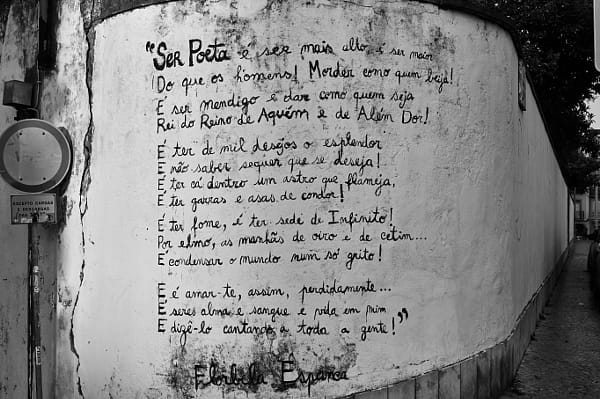 "Ser Poeta é ser mais alto, é ser maior
Do que os homens! Morder como quem beija!
É ser mendigo e dar como quem seja
Rei do Reino de Aquém e de Além Dor!
É ter de mil desejos o esplendor
E não saber sequer que se deseja!
É ter cá dentro um astro que flameja,
É ter garras e asas de condor!
É ter fome, é ter sede de Infinito!
Por elmo, as manhãs de oiro e de cetim...
É condensar o mundo num só grito!
E é amar-te, assim, perdidamente...
É seres alma e sangue e vida em mim
E dizê-lo cantando a toda a gente!"
Florbela Espanca
EXCEPTO CARGAS
E DESCARGAS